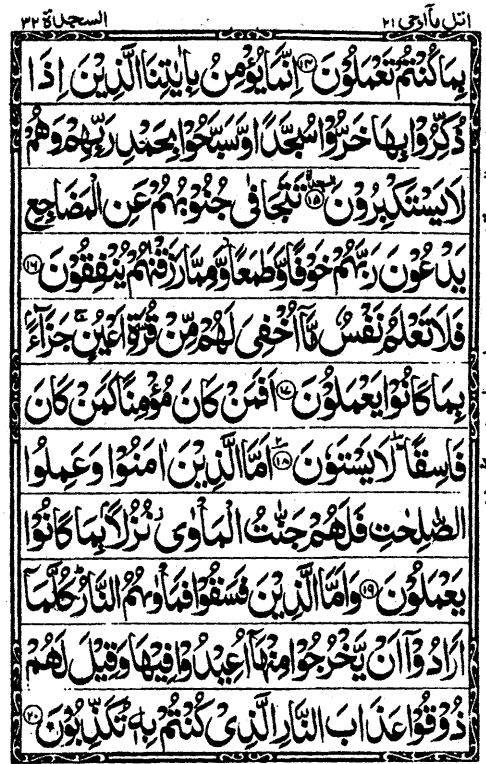 اتل مآ اوحی ۲۱
السجدة ۳۲
بِمَا كُنْتُمْ تَعْمَلُوْنَ ۝۱۴ اِنَّمَا يُؤْمِنُ بِاٰيٰتِنَا الَّذِيْنَ اِذَا
ذُكِّرُوْا بِهَا خَرُّوْا سُجَّدًا وَّسَبَّحُوْا بِحَمْدِ رَبِّهِمْ وَهُمْ
لَا يَسْتَكْبِرُوْنَ ۝۱۵ تَتَجَافٰى جُنُوْبُهُمْ عَنِ الْمَضَاجِعِ
يَدْعُوْنَ رَبَّهُمْ خَوْفًا وَّطَمَعًا وَّمِمَّا رَزَقْنٰهُمْ يُنْفِقُوْنَ ۝۱۶
فَلَا تَعْلَمُ نَفْسٌ مَّاۤ اُخْفِىَ لَهُمْ مِّنْ قُرَّةِ اَعْيُنٍ ۚ جَزَآءًۢ
بِمَا كَانُوْا يَعْمَلُوْنَ ۝۱۷ اَفَمَنْ كَانَ مُؤْمِنًا كَمَنْ كَانَ
فَاسِقًا ؕ لَا يَسْتَوٗنَ ۝۱۸ اَمَّا الَّذِيْنَ اٰمَنُوْا وَعَمِلُوا
الصّٰلِحٰتِ فَلَهُمْ جَنّٰتُ الْمَاْوٰى ؗ نُزُلًۢا بِمَا كَانُوْا
يَعْمَلُوْنَ ۝۱۹ وَاَمَّا الَّذِيْنَ فَسَقُوْا فَمَاْوٰىهُمُ النَّارُ ؕ كُلَّمَاۤ
اَرَادُوْۤا اَنْ يَّخْرُجُوْا مِنْهَاۤ اُعِيْدُوْا فِيْهَا وَقِيْلَ لَهُمْ
ذُوْقُوْا عَذَابَ النَّارِ الَّذِىْ كُنْتُمْ بِهٖ تُكَذِّبُوْنَ ۝۲۰